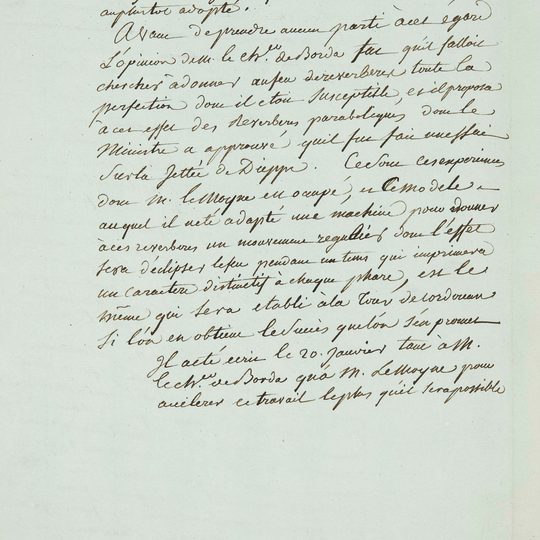 adopté.
Avant de prendre aucun parti à cet égard
L'opinion de M. le Ch.er de Borda fut qu'il falloit
chercher à donner au feu de reverbere toute la
perfection dont il étoit susceptible, et il proposa
à cet effet des Reverberes paraboliques dont le
Ministre a approuvé qu'il fut fait un essai
sur la Jettée de Dieppe. Ce sont ces expériences
dont M. le Moyne est occupé, et Ce modèle
auquel il a été adapté une machine pour donner
à ces reverberes un mouvement regulier dont l'effet
sera d'éclipser le feu pendant un tems qui imprimera
un Caractere distinctif à chaque phare, est le
même qui sera etabli à la Tour de Cordouan
si l'on en obtient le succès que l'on s'en promet
Il a été écrit le 20. Janvier tant à M.
le Ch.er de Borda qu'à M. Le Moyne pour
accélerer ce travail le plus qu'il sera possible